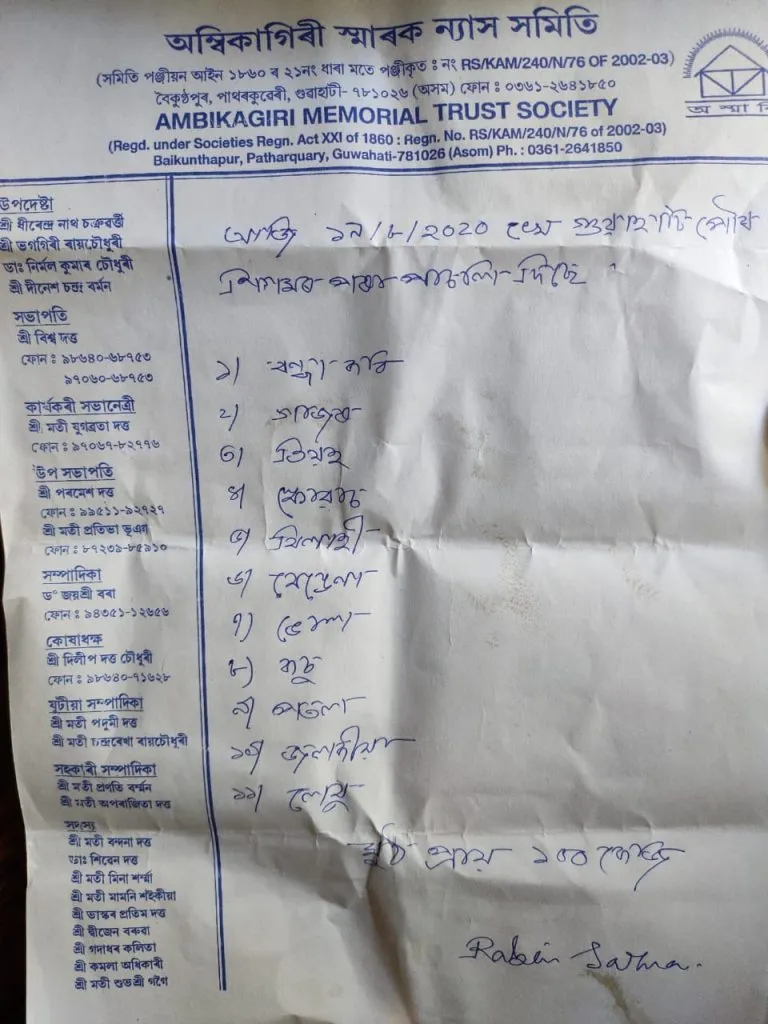 অম্বিকাগিৰী স্মাৰক ন্যাস সমিতি
(সমিতি পঞ্জীয়ন আইন ১৮৬০ ৰ ২১নং ধাৰা মতে পঞ্জীকৃত : নং RS/KAM/240/N/76 OF 2002-03)
বৈকুণ্ঠপুৰ, পাথৰকুৱেৰী, গুৱাহাটী- ৭৮১০২৬ (অসম) ফোন : ০৩৬১-২৬৪১৮৫০
AMBIKAGIRI MEMORIAL TRUST SOCIETY
(Regd. under Societies Regn. Act XXI of 1860 : Regn. No. RS/KAM/240/N/76 of 2002-03)
Baikunthapur, Patharquary, Guwahati-781026 (Asom) Ph. : 0361-2641850
উপদেষ্টা
শ্ৰী ধীৰেন্দ্ৰ নাথ চক্ৰৱৰ্ত্তী
শ্ৰী ভগগিৰী ৰায়চৌধুৰী
ডাঃ নিৰ্মল কুমাৰ চৌধুৰী
শ্ৰী দীনেশ চন্দ্ৰ বৰ্মন
সভাপতি
শ্ৰী বিশ্ব দত্ত
ফোন : ৯৮৬৪০-৬৮৭৫৩
৯৭০৬০-৬৮৭৫৩
কাৰ্যকৰী সভানেত্ৰী
শ্ৰী মতী যুগব্ৰতা দত্ত
ফোন : ৯৭০৬৭-৮২৭৭৬
উপ সভাপতি
শ্ৰী পৰমেশ দত্ত
ফোন : ৯৯৫১১-৯২৭২৭
শ্ৰী মতী প্ৰতিভা ভূএগ
ফোন : ৮৭২৩৯-৮৫৯১০
সম্পাদিকা
ড° জয়শ্ৰী বৰা
ফোন : ৯৪৩৫১-১২৬৫৬
কোষাধক্ষ
শ্ৰী দিলীপ দত্ত চৌধুৰী
ফোন : ৯৮৬৪০-৭১৬২৮
যুটীয়া সম্পাদিকা
শ্ৰী মতী পদুমী দত্ত
শ্ৰী মতী চন্দ্ৰৰেখা ৰায়চৌধুৰী
সহকাৰী সম্পাদিকা
শ্ৰী মতী প্ৰণতি বৰ্ম্মন
শ্ৰী মতী অপৰাজিতা দত্ত
সদস্য
শ্ৰী মতী বন্দনা দত্ত
ডাঃ শিৱেন দত্ত
শ্ৰী মতী মিনা শৰ্ম্মা
শ্ৰী মতী মামনি শইকীয়া
শ্ৰী ভাস্কৰ প্ৰতিম দত্ত
শ্ৰী দ্বীজেন বৰুৱা
শ্ৰী গদাধৰ কলিতা
শ্ৰী কমলা অধিকাৰী
শ্ৰী মতী শুভশ্ৰী গগৈ
আজি ১৯/৮/২০২০ গুৱাহাটী পৌৰ
নিগমৰ পৰা পাচলি দিছে
১)
২) গাজৰ
৩) তিয়হ
৪) স্কোৱাচ
৫) বিলাহী
৬)
৭) ভোল
৮) কচু
৯)
১০) জলকীয়া
১১) নেমু
প্ৰায় ১০০ কেজি
Rabin Sarma.